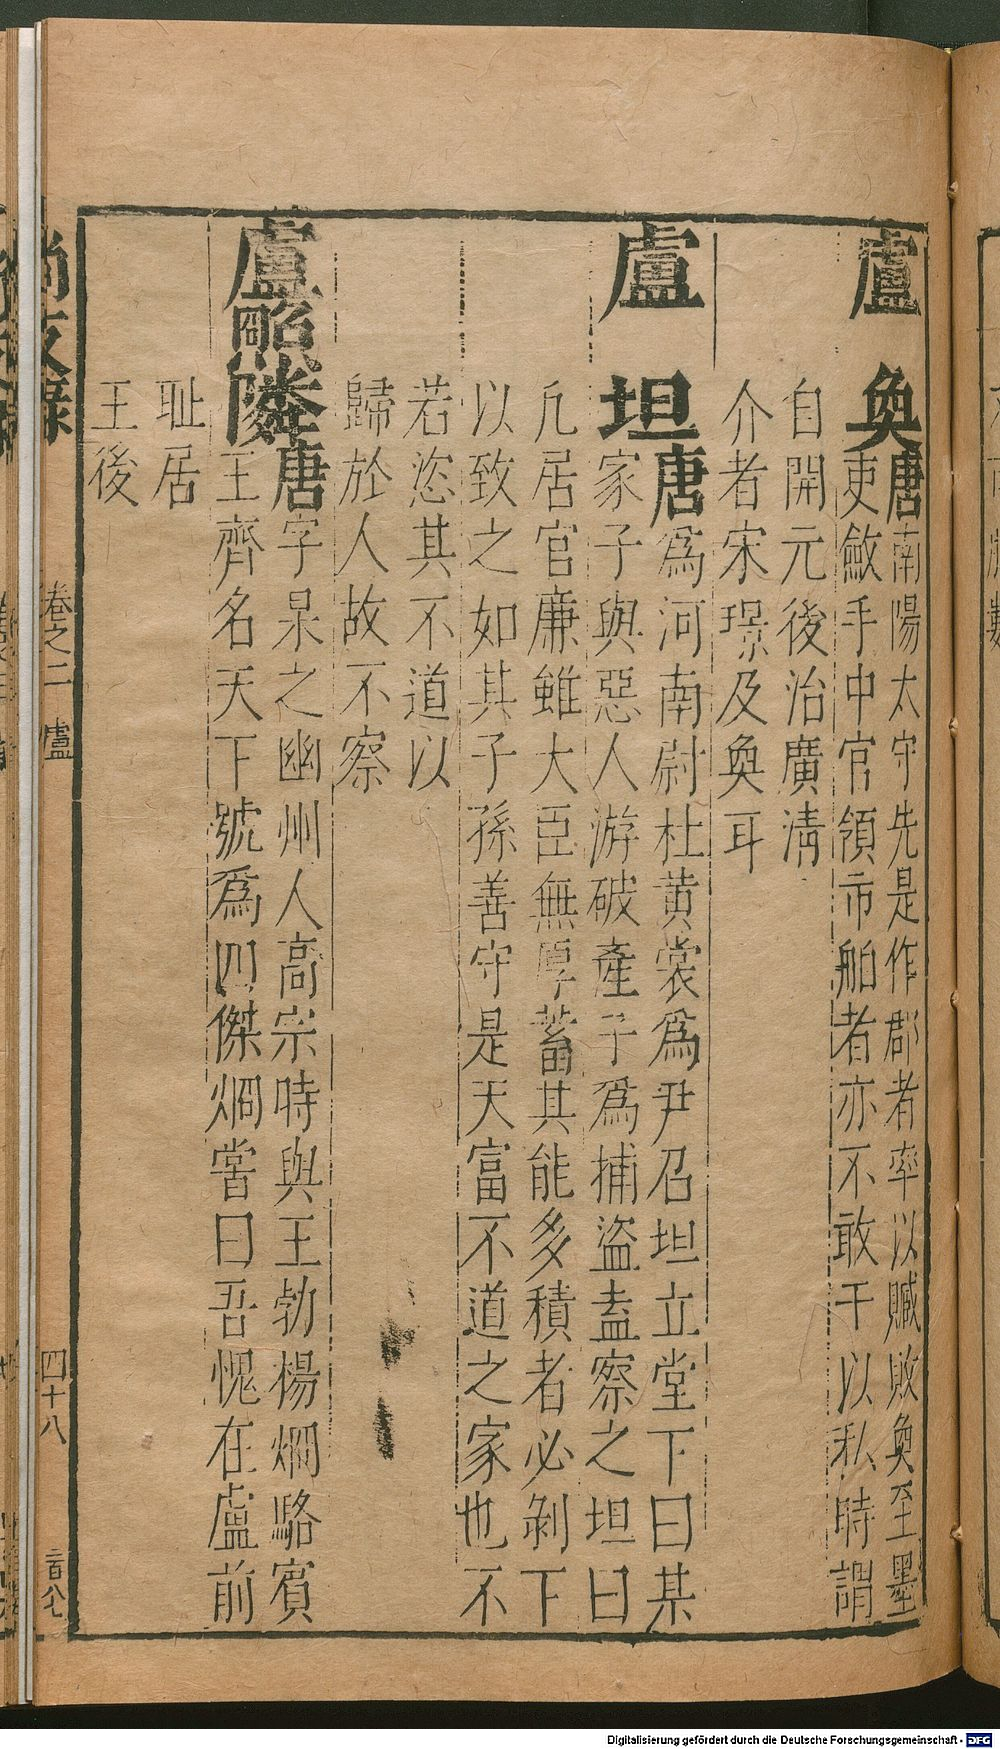 盧 奐唐南陽太守先是作郡者率以贓敗奐至墨
吏斂手中官領市舶者亦不敢干以私時謂
自開元後治廣淸
介者宋璟及奐耳
盧 坦唐爲河南尉杜黄裳爲尹召坦立堂下曰某
家子與惡人游破產子爲捕盜盍察之坦曰
凢居官廉雖大臣無厚蓄其能多積者必剝下
以致之如其子孫善守是天富不道之家也不
若恣其不道以
歸於人故不察
盧照隣唐字杲之幽州人高宗時與王勃楊烱駱賓
王齊名天下號爲四傑烱嘗曰吾愧在盧前
耻居
王後
尚友錄 卷之二 盧 四十八
Digitalisierung gefördert durch die Deutsche Forschungsgemeinschaft - DFG